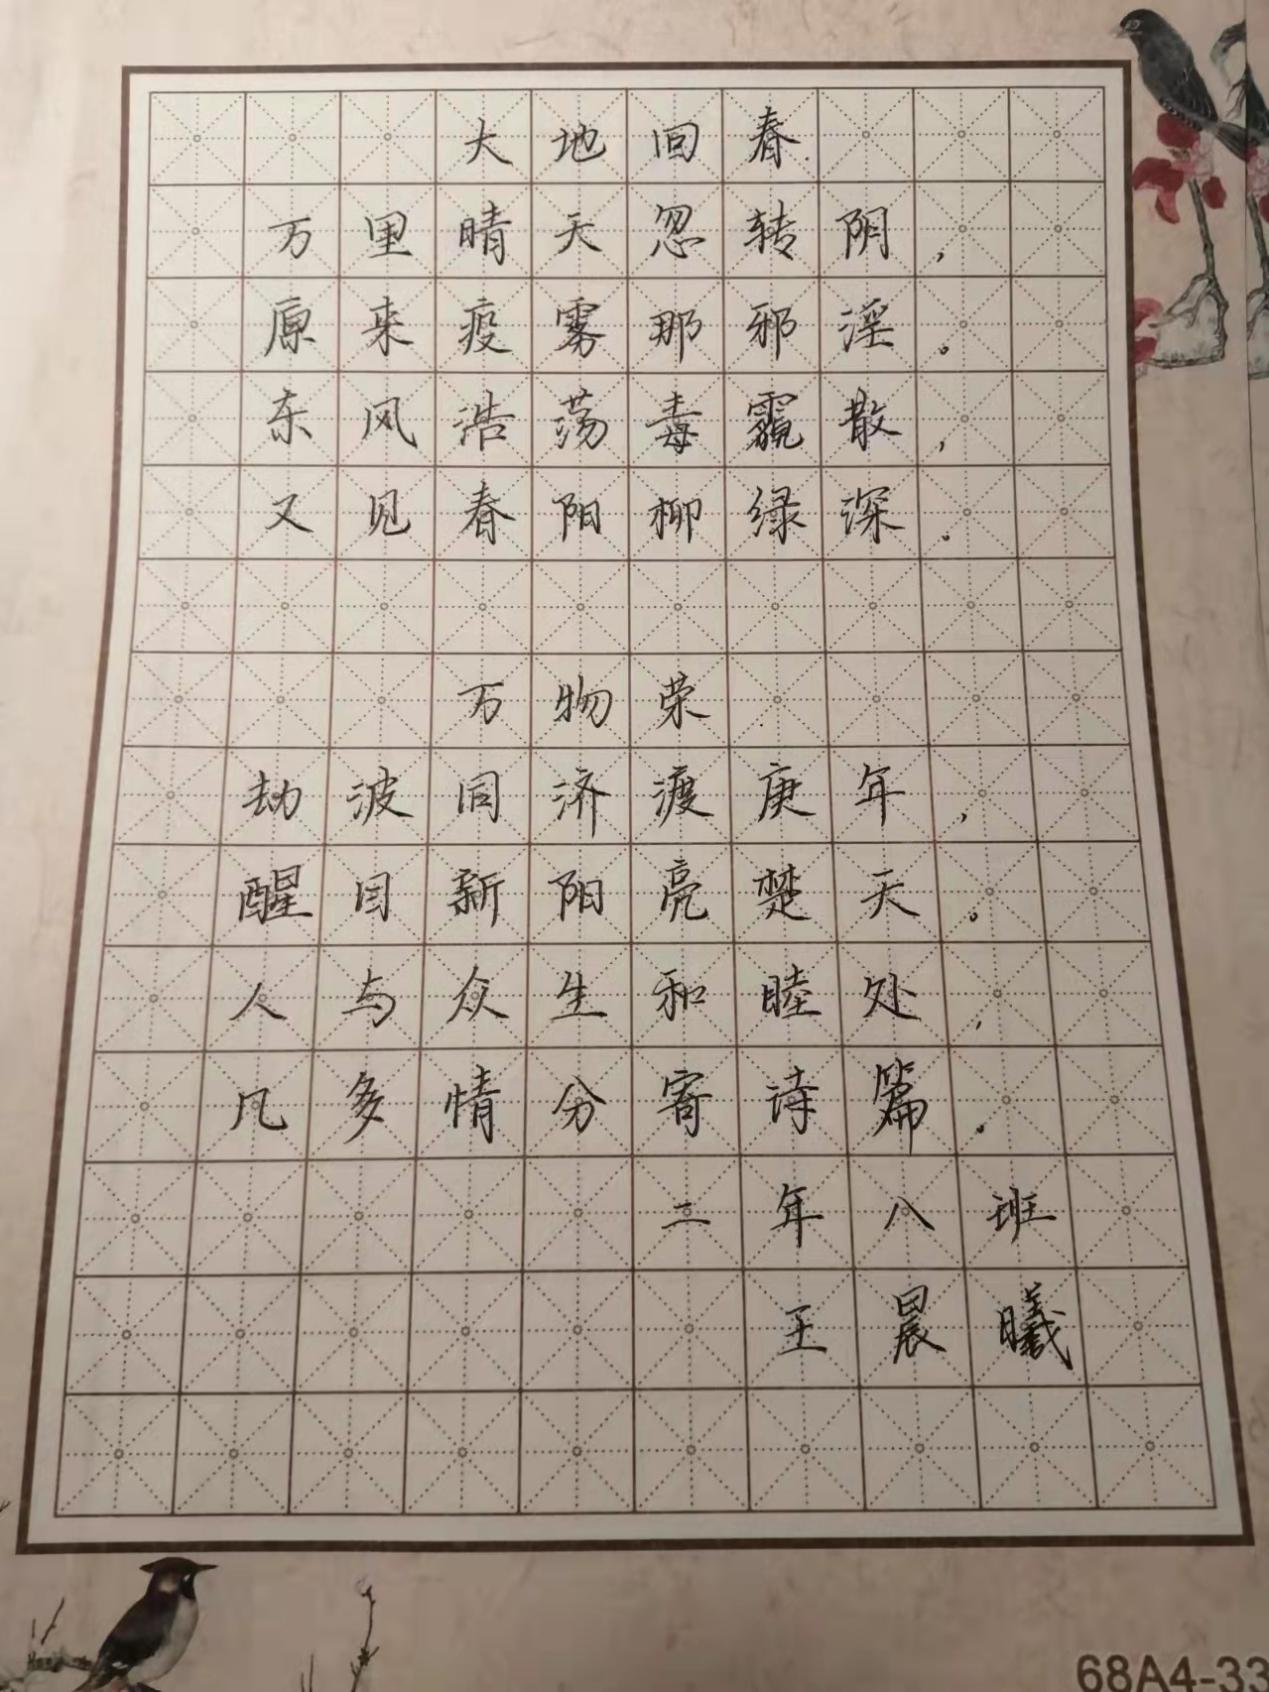 大地回春
万里晴天忽转阴，
原来疫雾那邪淫。
东风浩荡毒霓散，
又见春阳柳绿深。
万物荣
劫波同济渡庚年，
醒目新阳亮楚天。
人与众生和睦处，
几多情分寄诗篇。
二年八班
王晨曦
68A4-33